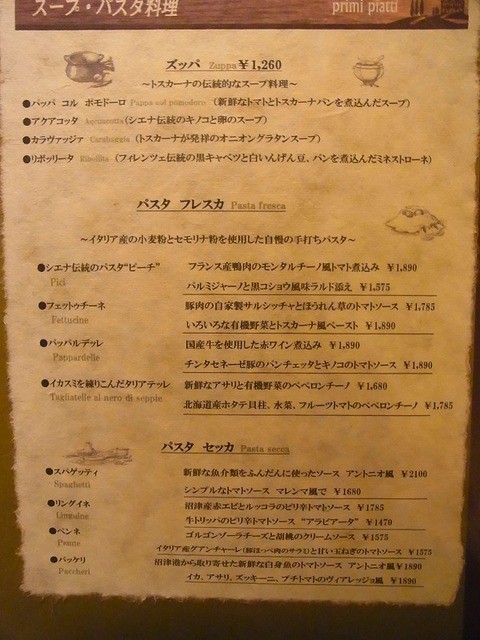 スープ・パスタ料理
primi piatti
ズッパ Zuppa ¥1,260
～トスカーナの伝統的なスープ料理～
●パッパ コル ポモドーロ Pappa col pomodoro (新鮮なトマトとトスカーナパンを煮込んだスープ)
●アクアコッタ Aquacotta (シエナ伝統のキノコと卵のスープ)
●カラヴァッジァ Carabaggia (トスカーナが発祥のオニオングラタンスープ)
●リボッリータ Ribollita (フィレンツェ伝統の黒キャベツと白いんげん豆、パンを煮込んだミネストローネ)
パスタ フレスカ Pasta fresca
～イタリア産の小麦粉とセモリナ粉を使用した自慢の手打ちパスタ～
●シエナ伝統のパスタ“ピーチ” フランス産鴨肉のモンタルチーノ風トマト煮込み ¥1,890
Pici パルミジャーノと黒コショウ風味ラルド添え ¥1,575
●フェットゥチーネ 豚肉の自家製サルシッチャとほうれん草のトマトソース ¥1,785
Fettucine いろいろな有機野菜とトスカーナ風ペースト ¥1,890
●パッパルデッレ 国産牛を使用した赤ワイン煮込み ¥1,890
Pappardelle チンタセネーゼ豚のパンチェッタとキノコのトマトソース ¥1,890
●イカスミを練りこんだタリアテッレ 新鮮なアサリと有機野菜のペペロンチーノ ¥1,680
Tagliatelle al nero di seppie 北海道産ホタテ貝柱、水菜、フルーツトマトのペペロンチーノ ¥1,785
パスタ セッカ Pasta secca
●スパゲッティ 新鮮な魚介類をふんだんに使ったソース アントニオ風 ¥2100
Spaghetti シンプルなトマトソース マレンマ風で ¥1680
●リングイネ 沼津産赤エビとルッコラのピリ辛トマトソース ¥1785
Linguine 牛トリッパのピリ辛トマトソース “アラビアータ” ¥1470
●ペンネ ゴルゴンゾーラチーズと胡桃のクリームソース ¥1575
Penne イタリア産グアンチャーレ(豚ほっぺ肉のサラミ)と甘い玉ねぎのトマトソース ¥1575
●パッケリ 沼津港から取り寄せた新鮮な白身魚のトマトソース アントニオ風 ¥1890
Paccheri イカ、アサリ、ズッキーニ、プチトマトのヴィアレッジョ風 ¥1890